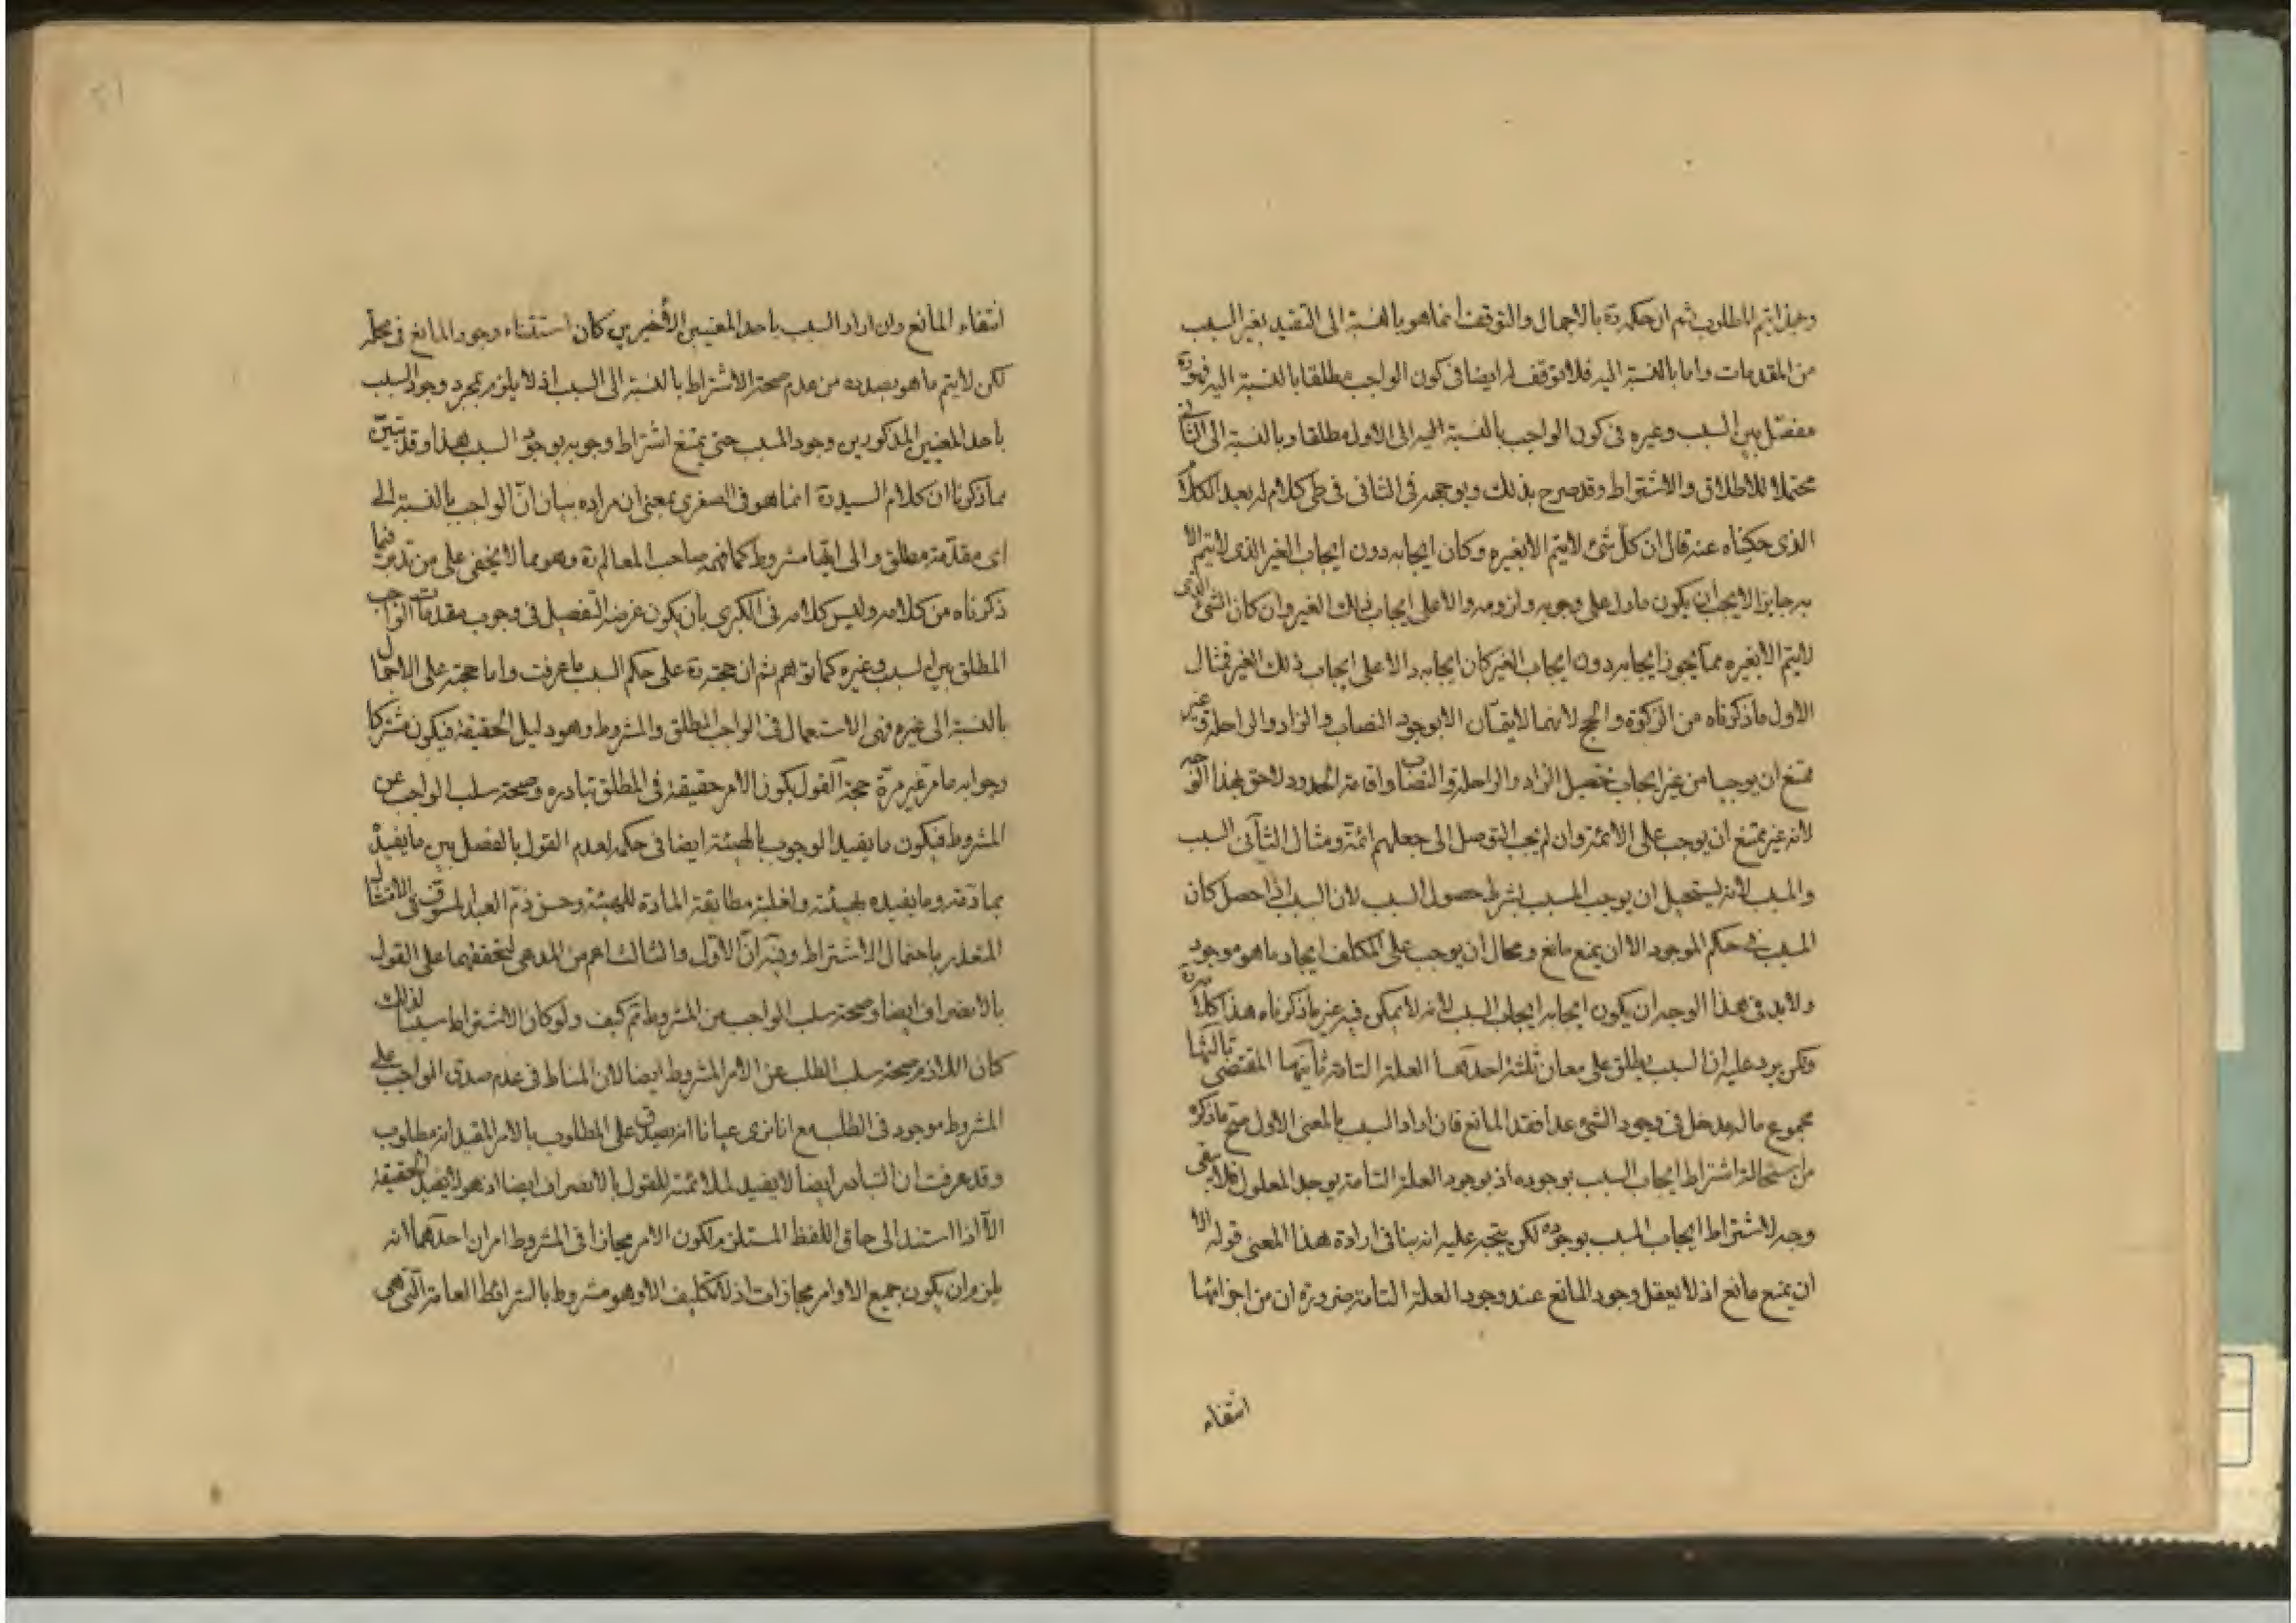 وحينئذ يتم المطلوب ثم ان حكمه ره بالاجمال والتوقف انما هو بالنسبة الى التقييد بغير السبب
من المقدمات واما بالنسبة اليه فلا توقف له ايضا في كون الواجب مطلقا بالنسبة اليه فهو ره
مفصل بين السبب وغيره في كون الواجب بالنسبة الى الاول مطلقا وبالنسبة الى الثاني
محتملا للاطلاق والاشتراط وقد صرح بذلك وبوجهه في الثاني في طى كلام له بعد الكلام
الذى حكيناه عنه قال ان كل شئ لا يتم الا بغيره وكان ايجابه دون ايجاب الغير الذى لا يتم الا
به جايزا لا يجب ان يكون ما دل على وجوبه ولزومه دالا على ايجاب ذلك الغير وان كان الشئ الذى
لا يتم الا بغيره مما لا يجوز ايجابه دون ايجاب الغير كان ايجابه دالا على ايجاب ذلك الغير فمثال
الاول ما ذكرناه من الزكوة والحج لانهما لا يتمان الا بوجود النصاب والزاد والراحلة وغير
ممتنع ان يوجبا من غير ايجاب تحصيل الزاد والراحلة والنصاب واقامة الحدود لاحق بهذا الوجه
لانه غير ممتنع ان يوجب على الائمة وان لم يجب التوصل الى جعلهم ائمة ومثال الثاني السبب
والمسبب لانه يستحيل ان يوجب المسبب بشرط حصول السبب لان السبب اذا حصل كان
المسبب في حكم الموجود الا ان يمنع مانع ومحال ان يوجب على المكلف ايجاد ما هو موجود
ولا بد في هذا الوجه ان يكون ايجابه ايجاب السبب لانه لا يمكن فيه غير ما ذكرناه هذا كلامه ره
ولكن يرد عليه ان السبب يطلق على معان ثلثة احدها العلة التامة ثانيها المقتضى ثالثها
مجموع ما له مدخل في وجود الشئ عدا فقد المانع فان اراد السبب بالمعنى الاول صح ما ذكره
من استحالة اشتراط ايجاب المسبب بوجوده اذ بوجود العلة التامة يوجد المعلول فلا يبقى
وجه لاشتراط ايجاب المسبب بوجوده لكن يتجه عليه انه ينافي ارادة هذا المعنى قوله الا
ان يمنع مانع اذ لا يعقل وجود المانع عند وجود العلة التامة ضرورة ان من اجزائها
انتفاء
انتفاء المانع وان اراد السبب باحد المعنيين الاخيرين كان استثناء وجود المانع في محله
لكن لا يتم ما هو بصدده من عدم صحة الاشتراط بالنسبة الى السبب اذ لا يلزم بمجرد وجود السبب
باحد المعنيين المذكورين وجود المسبب حتى يمتنع اشتراط وجوبه بوجود السبب هذا وقد تبين
بما ذكرنا ان كلام السيد ره انما هو في الصغرى بمعنى ان مراده بيان ان الواجب بالنسبة الى
اى مقدمة مطلق والى ايتها مشروط كما فهمه صاحب المعالم ره وهو مما لا يخفى على من تدبر فيما
ذكرناه من كلامه وليس كلامه في الكبرى بان يكون غرضه التفصيل في وجوب مقدمات الواجب
المطلق بين السبب وغيره كما توهم ثم ان حجته ره على حكم السبب ما عرفت واما حجته على الاجمال
بالنسبة الى غيره فهى الاستعمال في الواجب المطلق والمشروط وهو دليل الحقيقة فيكون مشتركا
وجوابه ما مر غير مرة حجة القول بكون الامر حقيقة في المطلق تبادره وصحة سلب الواجب عن
المشروط فيكون ما يفيد الوجوب بالهيئة ايضا في حكمه لعدم القول بالفصل بين ما يفيده
بمادته وما يفيده بهيئته واغلبية مطابقة المادة للهيئة وحسن ذم العبد المسوف في الامتثال
المتعذر باحتمال الاشتراط وفيه ان الاول والثالث اعم من المدعى لتحققهما على القول
بالانصراف ايضا وصحة سلب الواجب عن المشروط تم كيف ولو كان الاشتراط سببا لذلك
كان اللازم صحة سلب الطلب عن الامر المشروط ايضا لان المناط في عدم صدق الواجب على
المشروط موجود في الطلب مع انا نرى عيانا انه يصدق على المطلوب بالامر المقيد انه مطلوب
وقد عرفت ان التبادر ايضا لا يفيد لملائمته للقول بالانصراف ايضا اذ هو لا يفيد الحقيقة
الا اذا استند الى حاق اللفظ المستلزم لكون الامر مجازا في المشروط امران احدهما انه
يلزم ان يكون جميع الاوامر مجازات اذ لا تكليف الا وهو مشروط بالشرائط العامة التى هى